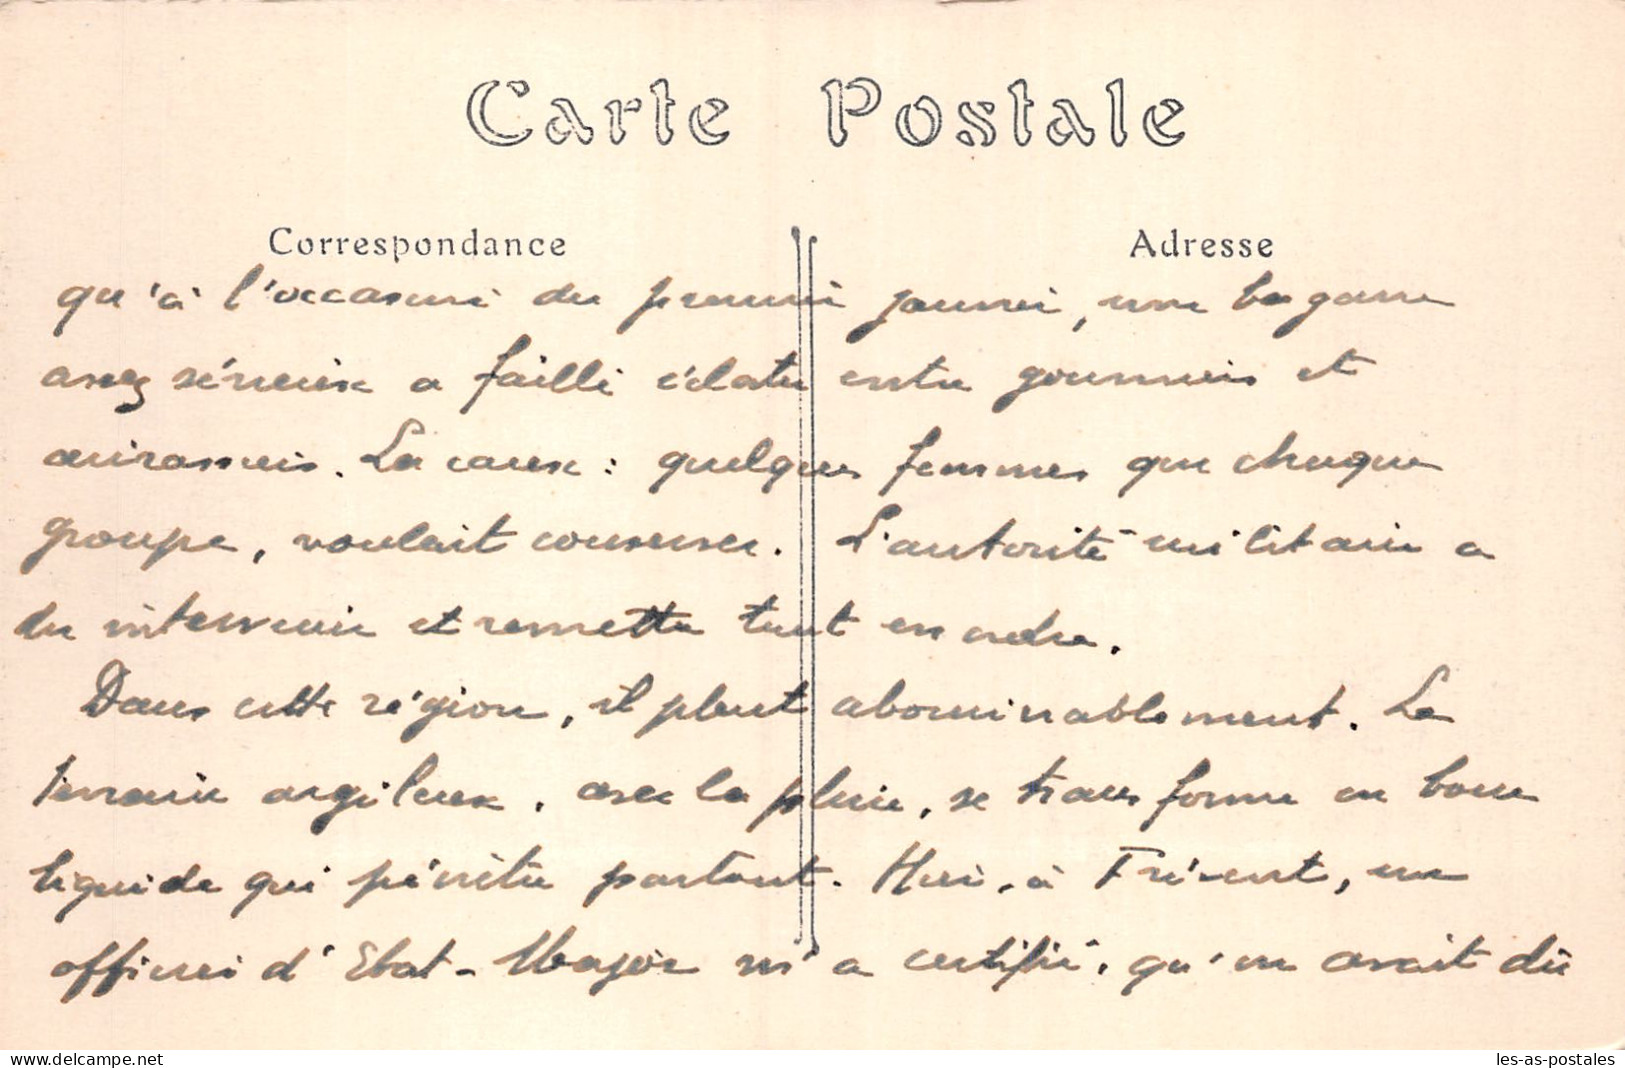 Carte Postale
Correspondance
Adresse
qu'à l'occasion du premier janvier, une bagarre
assez sérieuse a failli éclater entre goumiers et
cuirassiers. La cause : quelques femmes que chaque
groupe, voulait conserver. L'autorité militaire a
du intervenir et remettre tout en ordre.
Dans cette région, il pleut abominablement. Le
terrain argileux, avec la pluie, se transforme en boue
liquide qui pénètre partout. Hier, à Frévent, un
officier d'Etat-Major m'a certifié, qu'on avait dû
www.delcampe.net
les-as-postales